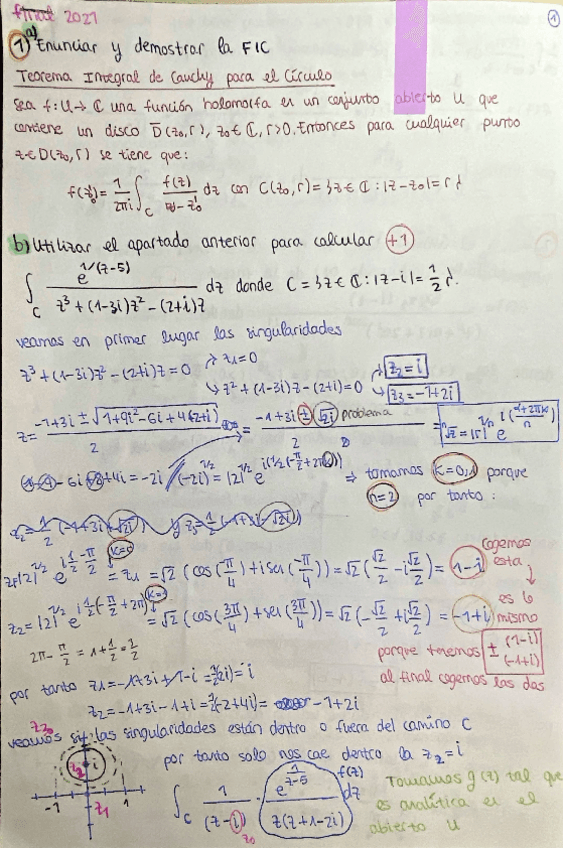 final 2021
1
1) a) Enunciar y demostrar la FIC
Teorema Integral de Cauchy para el Círculo
Sea f: U → ℂ una función holomorfa en un conjunto abierto U que
contiene un disco D̄(z₀,r), z₀ ∈ ℂ, r>0. Entonces para cualquier punto
z ∈ D(z₀,r) se tiene que:
= 1/2πi ∫_C dz con C(z₀,r) = {z ∈ ℂ : |z - z₀| = r}
b) Utilizar el apartado anterior para calcular +1
∫_C e^{1/(z-5)} / (z³ + (1-3i)z² - (2+i)z) dz donde C = {z ∈ ℂ : |z - i| = 1/2}.
veamos en primer lugar las singularidades
z³ + (1-3i)z² - (2+i)z = 0 → z₁ = 0
→ z² + (1-3i)z - (2+i) = 0 → z₂ = i
→ z₃ = -1+2i
z = (-1+3i ± √(1+9i²-6i+4(2+i))) / 2 = (-1+3i ± √-2i) / 2 problema
-6i +4i = -2i (-2i)^{1/2} = |2|^{1/2} e^{i(1/2(-π/2+2πk))} ⇒ tomamos k=0,1 porque
n=2 por tanto:
z₂ = 1/2(-1+3i+√-2i) y z₃ = 1/2(-1+3i-√-2i)
|2|^{1/2} e^{i 1/2 · -π/2} k=0 = z₁ = √2 (cos(-π/4) + i sen(-π/4)) = √2 (√2/2 - i√2/2) = 1-i
cogemos
esta
↓
es lo
mismo
z₂ = |2|^{1/2} e^{i 1/2(-π/2+2π)} k=1 = √2 (cos(3π/4) + sen(3π/4)) = √2 (-√2/2 + i√2/2) = -1+i
porque tenemos ± (1-i) (-1+i)
al final cogemos las dos
por tanto z₁ = -1+3i+1-i = 1/2(2i) = i
z₂ = -1+3i-1+i = 1/2(-2+4i) = -1+2i
veamos si las singularidades están dentro o fuera del camino C
por tanto solo nos cae dentro la z₂ = i
z₃
z₂ i
-1 1
z₁
∫_C 1/(z-i) · e^{1/(z-5)} / (z(z+1-2i)) dz f(z)
z₀
Tomamos g(z) tal que
es analítica en el
abierto U